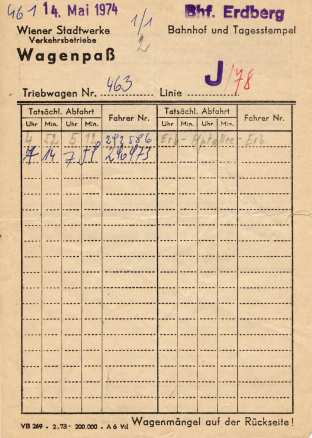 461 14. Mai 1974 1/1 Bhf. Erdberg
2
Wiener Stadtwerke Bahnhof und Tagesstempel
Verkehrsbetriebe
Wagenpaß
J/78
Triebwagen Nr. 463 Linie
Tatsächl. Abfahrt Fahrer Nr. Tatsächl. Abfahrt Fahrer Nr.
Uhr Min. Uhr Min. Uhr Min. Uhr Min.
4 5 Erb
7 14 7 58 296973
VB 269 - 2.73 - 200.000 - A 6 Vd Wagenmängel auf der Rückseite!